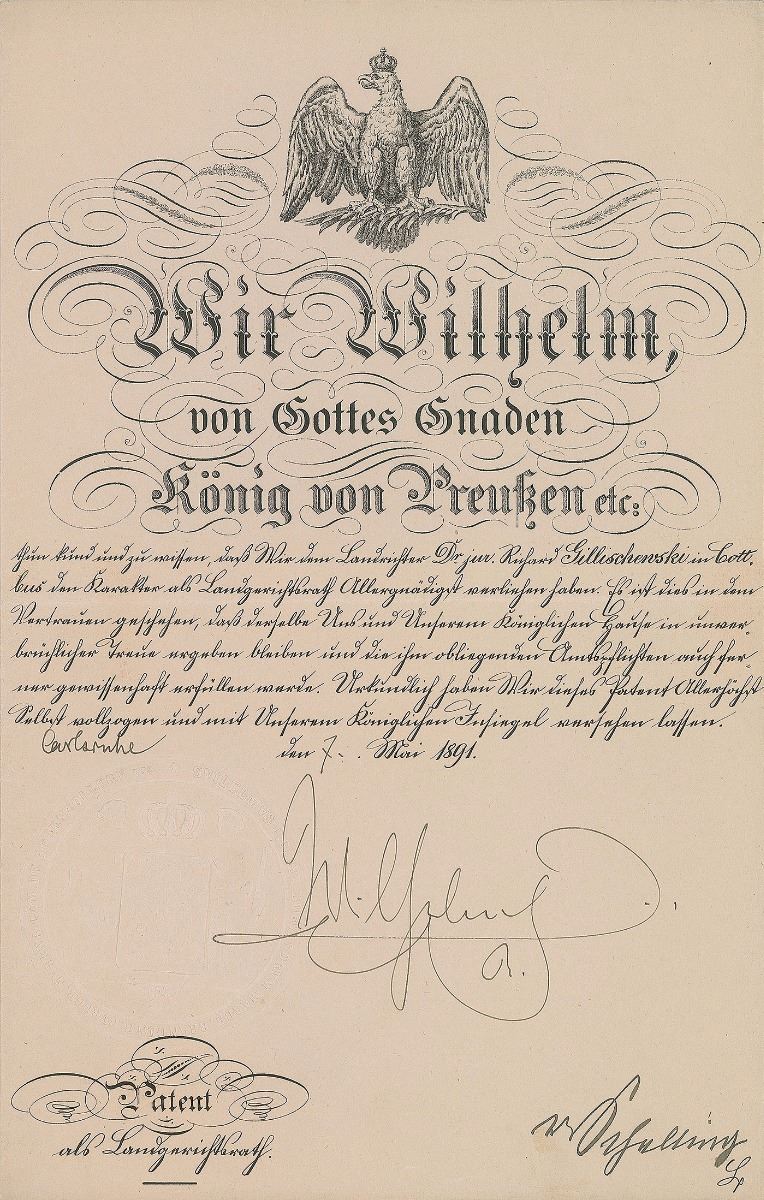 Wir Wilhelm,
von Gottes Gnaden
König von Preußen etc:
thun kund und zu wissen, daß Wir dem Landrichter Dr. jur. Richard Gillischewski in Cott-
bus den Karakter als Landgerichtsrath Allergnädigst verliehen haben. Es ist dies in dem
Vertrauen geschehen, daß derselbe Uns und Unserem Königlichen Hause in unver-
brüchlicher Treue ergeben bleiben und die ihm obliegenden Amtspflichten auch fer-
ner gewissenhaft erfüllen werde. Urkundlich haben Wir dieses Patent Allerhöchst
Selbst vollzogen und mit Unserem Königlichen Insiegel versehen lassen.
Carlsruhe den 7. Mai 1891.
Wilhelm
R.
Patent
als Landgerichtsrath.
v Schelling